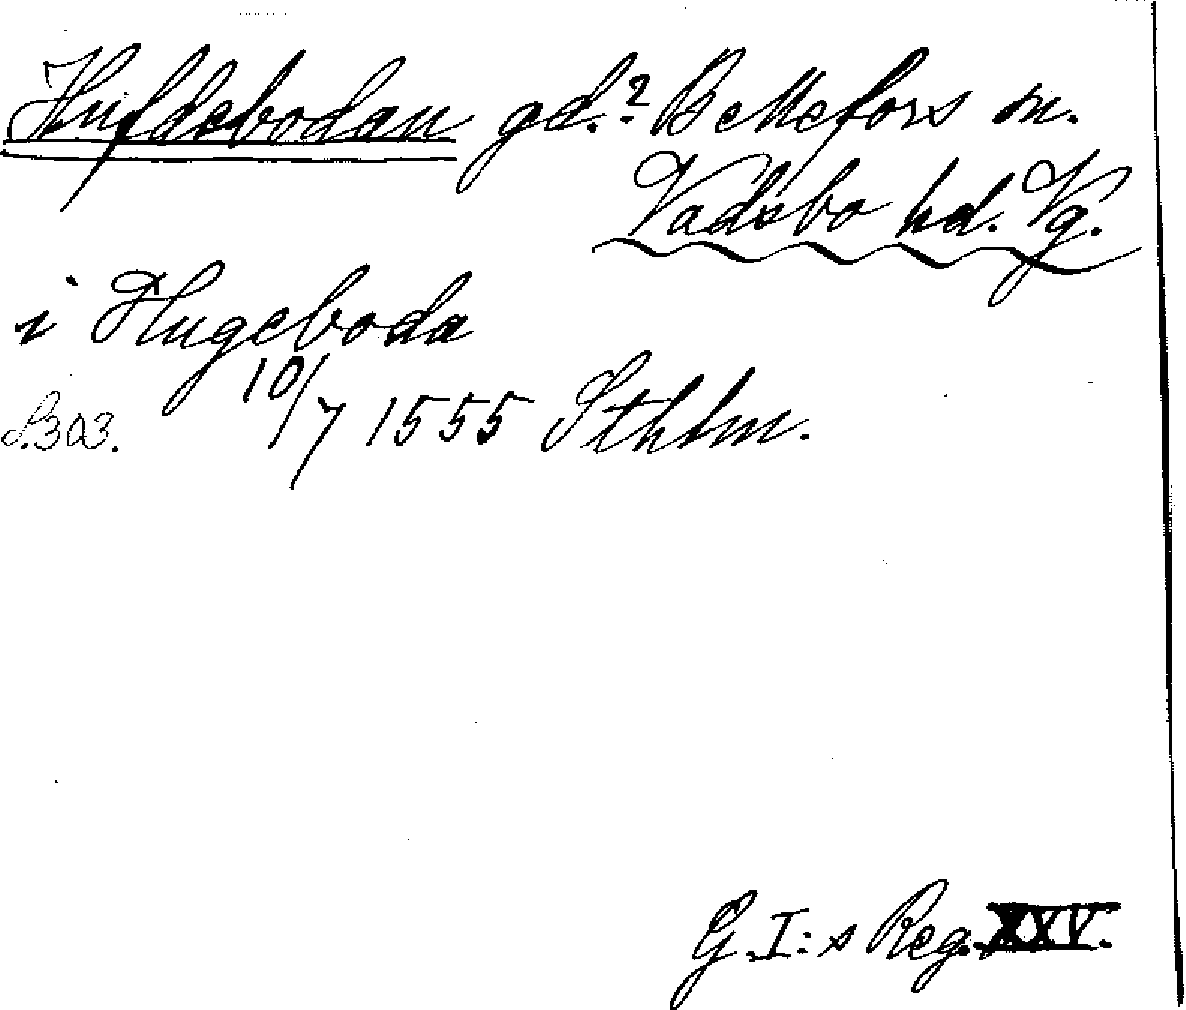 Hufdebodan gd.? Bellefors sn.
Vadsbo hd. Vg.
i Hugeboda
S. 303. 10/7 1555 Sthlm.
G. I:s Reg. XXV.